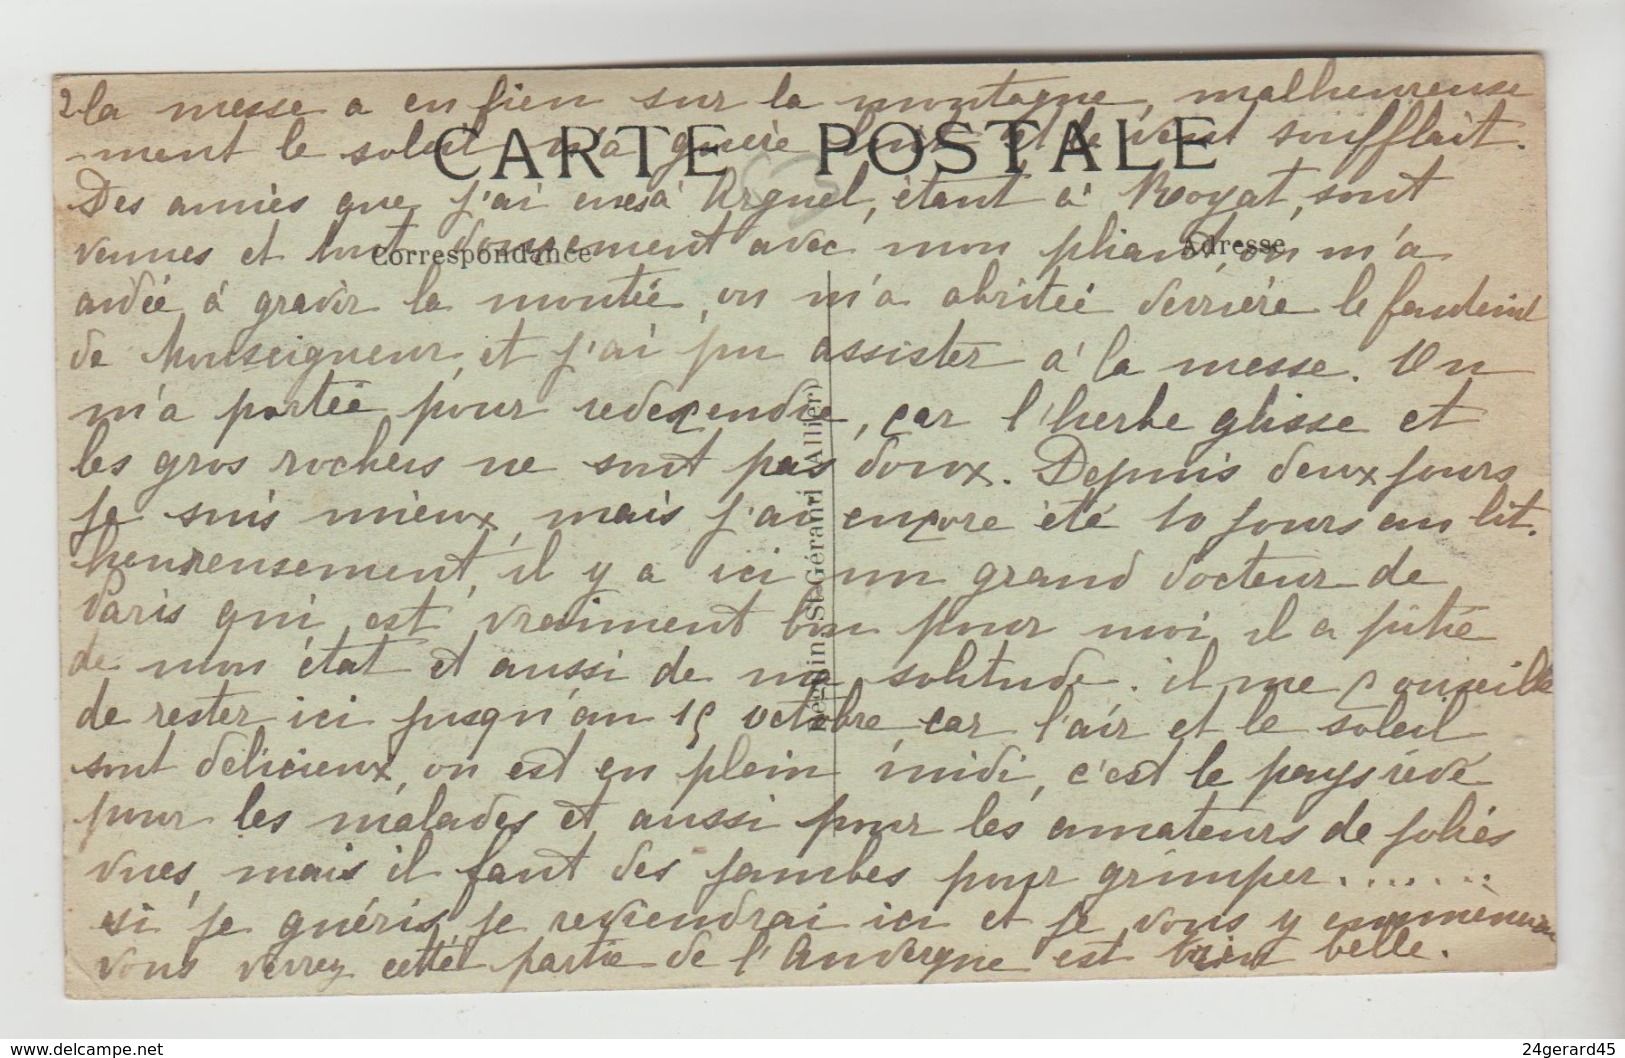 2 la messe a en lieu sur la montagne, malheureuse
-ment le soleil n'a guère lui et le vent soufflait.
CARTE POSTALE
Des amies que j'ai eues à Arguel, étant à Royat, sont
venues et tout doucement avec mon pliant, on m'a
Correspondance
Adresse
aidée à gravir la montée, on m'a abritée derrière le fauteuil
de Monseigneur, et j'ai pu assister à la messe. On
m'a portée pour redescendre, car l'herbe glisse et
les gros rochers ne sont pas doux. Depuis deux jours
je suis mieux, mais j'ai encore été 10 jours au lit.
heureusement, il y a ici un grand docteur de
Paris qui est vraiment bon pour moi, il a pitié
de mon état et aussi de ma solitude. il me conseille
de rester ici jusqu'au 15 octobre car l'air et le soleil
sont délicieux, on est en plein midi, c'est le pays rêvé
pour les malades et aussi pour les amateurs de jolies
vues, mais il faut des jambes pour grimper.......
si je guéris, je reviendrai ici et je vous y emmenerai
vous verrez cette partie de l'Auvergne est bien belle.
St-Gérand (Allier)
www.delcampe.net
24gerard45